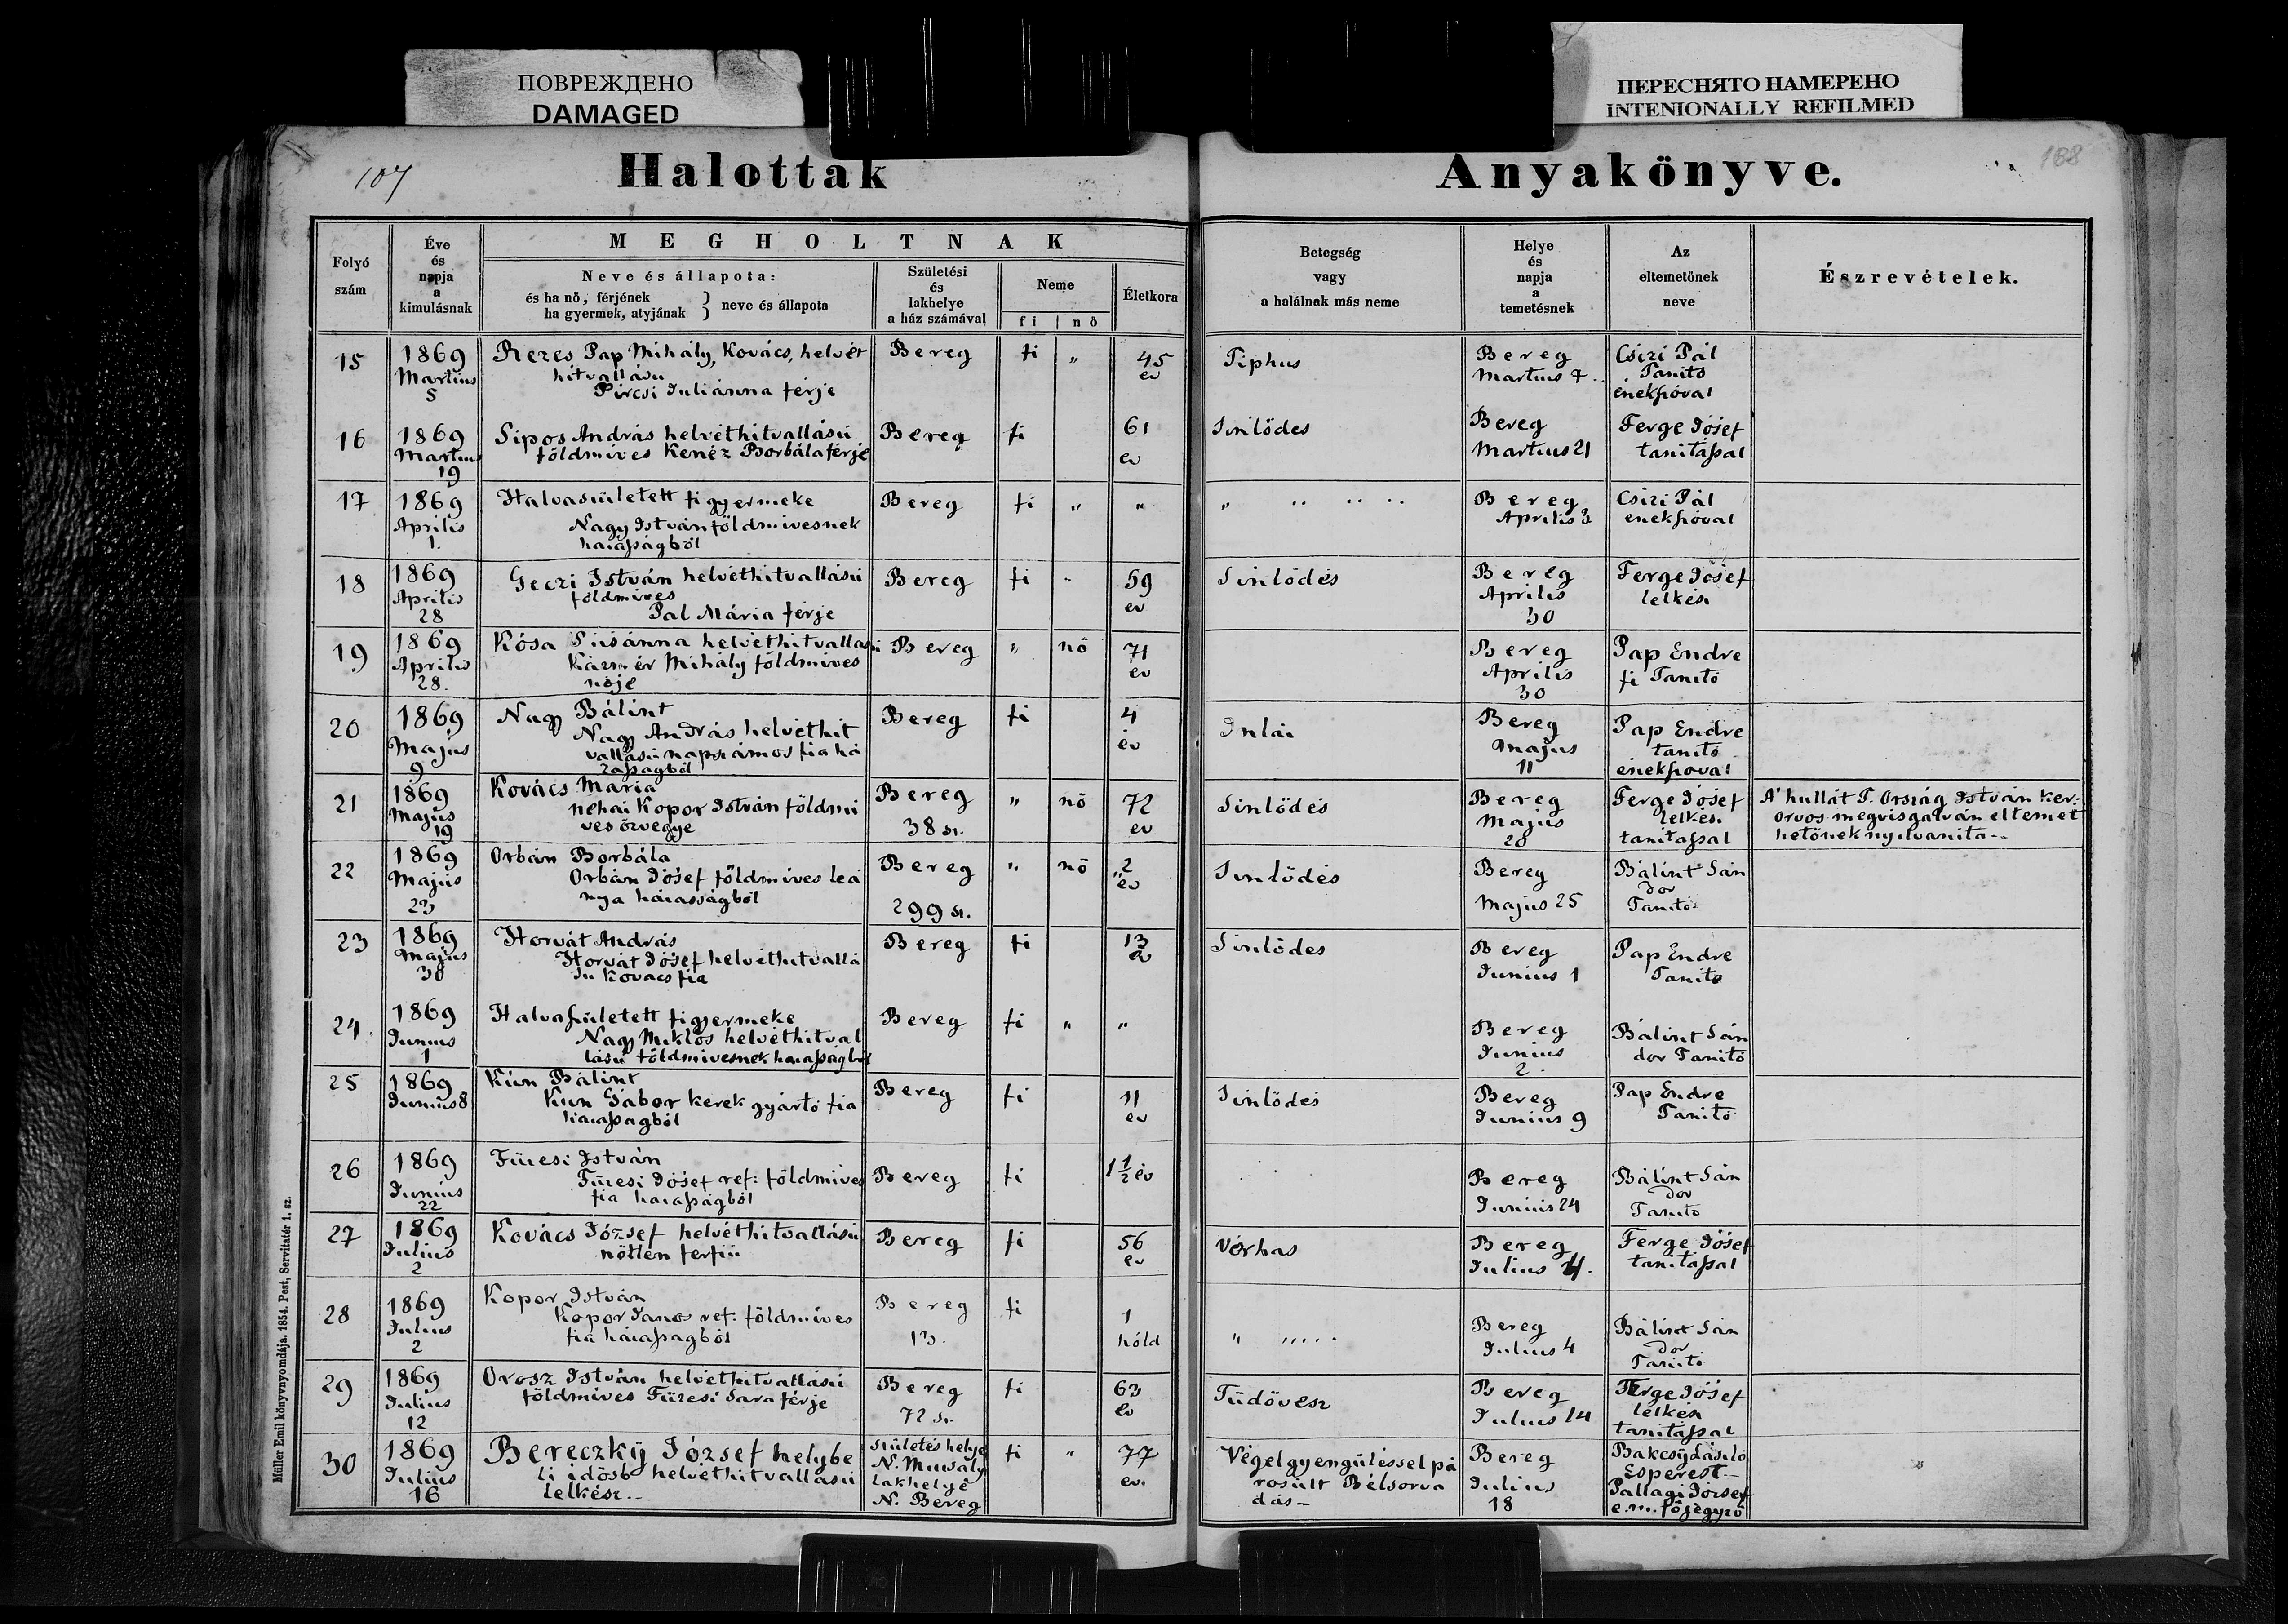 ПОВРЕЖДЕНО
DAMAGED
ПЕРЕСНЯТО НАМЕРЕНО
INTENIONALLY REFILMED
107
Halottak
Anyakönyve.
188
Folyó
szám
Éve
és
napja
a
kimulásnak
MEGHOLTNAK
Neve és állapota:
és ha nő, férjének
ha gyermek, atyjának } neve és állapota
Születési
és
lakhelye
a ház számával
Neme
fi | nő
Életkora
Betegség
vagy
a halálnak más neme
Helye
és
napja
a
temetésnek
Az
eltemetőnek
neve
Észrevételek.
15
1869
Martius
5
Rezes Pap Mihály, Kovács, helvét
hitvallású
Pircsi Juliánna férje
Bereg
fi
„
45
ev
Tiphus
Bereg
Martius 7.
Csizi Pál
Tanito
énekszóval
16
1869
Martius
19
Sipos András helvéthitvallású
földmíves Kenéz Borbála férje
Bereg
fi
61
ev
Sinlődes
Bereg
Martius 21
Ferge Jósef
tanitással
17
1869
Április
1.
Halvaszületett figyermeke
Nagy István földmivesnek
házasságból
Bereg
fi
„
„
„ .. .. ..
Bereg
Aprilis 3
Csizi Pál
enekszóval
18
1869
Április
28
Geczi István helvéthitvallású
földmíves
Pal Mária férje
Bereg
fi
„
59
ev
Sinlődés
Bereg
Aprilis
30
Ferge Jósef
lelkész
19
1869
Április
28.
Kósa Susánna helvéthitvallasú
Kázmér Mihály földmíves
nője
Bereg
„
nő
71
ev
Bereg
Aprilis
30
Pap Endre
fi Tanitó
20
1869
Majus
9
Nagy Bálint
Nagy András helvéthit
vallású napszámos fia há
zasságból
Bereg
fi
4
év
Inlái
Bereg
Majus
11
Pap Endre
tanitó
énekszoval
21
1869
Majus
19
Kovács Mária
néhai Kopor István földmi
ves özvegye
Bereg
38 sz.
„
nő
72
ev
Sinlődés
Bereg
Majus
20
Ferge Jósef
lelkész
tanitással
A' hullát T. Ország István ker:
orvos megvisgalván eltemet
hetőnek nyilvanita --
22
1869
Majus
23
Orbán Borbála
Orbán Jósef földmíves leá
nya házasságból
Bereg
299 sz.
„
nő
2
év
Sinlődés
Bereg
Majus 25
Bálint Sán
dor
Tanitó
23
1869
Majus
30
Horvát András
Horvát Jósef helvéthitvallá
su Kovacs fia
Bereg
fi
13
év
Sinlődes
Bereg
Junius 1
Pap Endre
Tanito
24.
1869
Junius
1
Halvaszületett figyermeke
Nagy Miklós helvéthitval
lású földmivesnek házasságból
Bereg
fi
„
„
Bereg
Junius
2
Bálint Sán
dor Tanitó
25
1869
Junius 8
Kún Bálint
Kun Gábor kerekgyártó fia
házasságból
Bereg
fi
11
ev
Sinlődés
Bereg
Junius 9
Pap Endre
Tanitó
26
1869
Junius
22
Füzesi István
Füzesi Jósef ref: földmíves
fia házasságból
Bereg
fi
1 1/2 év
Bereg
Junius 24
Bálint Sán
dor
Tanitó
27
1869
Julius
2
Kovács József helvéthitvallású
nőtlen ferfiú
Bereg
fi
56
ev
Vérhas
Bereg
Julius 4.
Ferge Jósef
tanitással
28
1869
Julius
2
Kopor István
Kopor Janos ref: földmíves
fia házasságból
Bereg
13.
fi
1
hóld
„ .....
Bereg
Julius 4
Bálint Sán
dor
Tanitó
29
1869
Julius
12
Orosz István helvéthitvallású
földmíves Füzesi Sara férje
Bereg
72 sz.
fi
63
ev
Tüdővesz
Bereg
Julius 14
Ferge Jósef
lelkész
tanitással
30
1869
Julius
16
Bereczkÿ József helybe
li idősb helvéthitvallású
lelkész. --
Születés helye
N. Muzsaly
Lakhelye
N. Bereg
fi
„
77
ev.
Végelgyengüléssel pá
rosúlt Bélsorva
dás --
Bereg
Julius
18
Bakcsÿ László
Esperest --
Pallagi József
e.m. főjegyző
„
Müller Emil könyvnyomdája. 1854. Pest, Servitatér 1. sz.